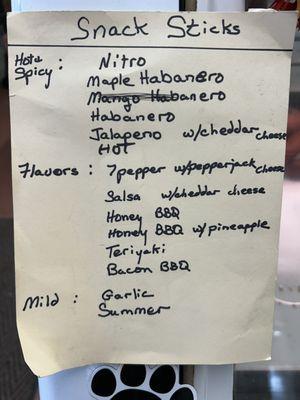 Snack Sticks
Hot & Spicy : Nitro
Maple Habanero
Mango Habanero
Habanero
Jalapeno w/cheddar cheese
HOT
Flavors : 7pepper w/pepperjack cheese
Salsa w/cheddar cheese
Honey BBQ
Honey BBQ w/pineapple
Teriyaki
Bacon BBQ
Mild : Garlic
Summer